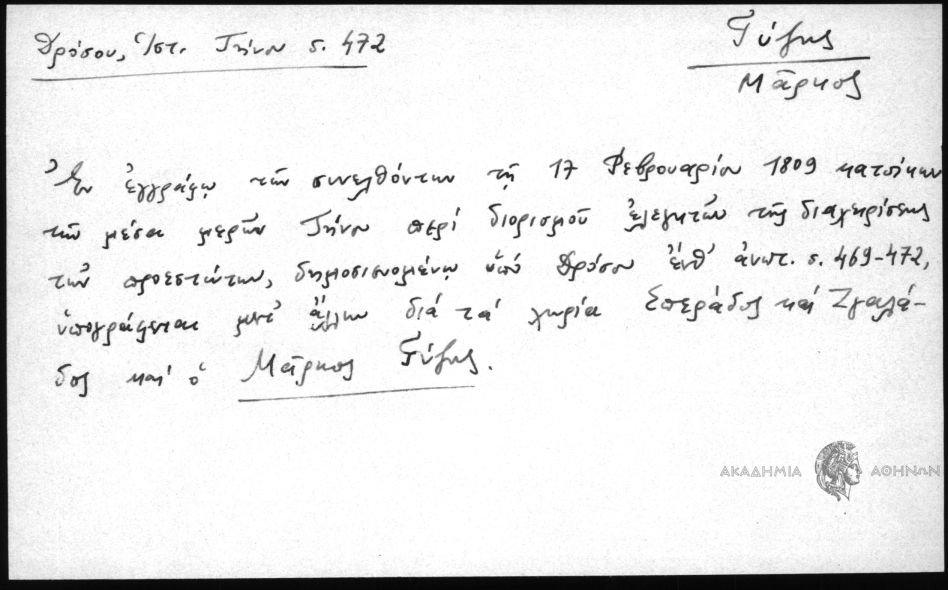 Δρόσου, Ἱστ. Τήνου σ. 472
Γύζης
Μᾶρκος
Ἐν ἐγγράφῳ τῶν συνελθόντων τῇ 17 Φεβρουαρίου 1809 κατοίκων
τῶν μέσα μερῶν Τήνου περί διορισμοῦ ἐλεγκτῶν τῆς διαχειρίσεως
τῶν προεστώτων, δημοσιευομένῳ ὑπό Δρόσου ἔνθ' ἀνωτ. σ. 469-472,
ὑπογράφεται μετ' ἄλλων διά τά χωρία Σπεράδος καί Ζγαλά-
δος καί ὁ Μᾶρκος Γύζης.
ΑΚΑΔΗΜΙΑ ΑΘΗΝΩΝ